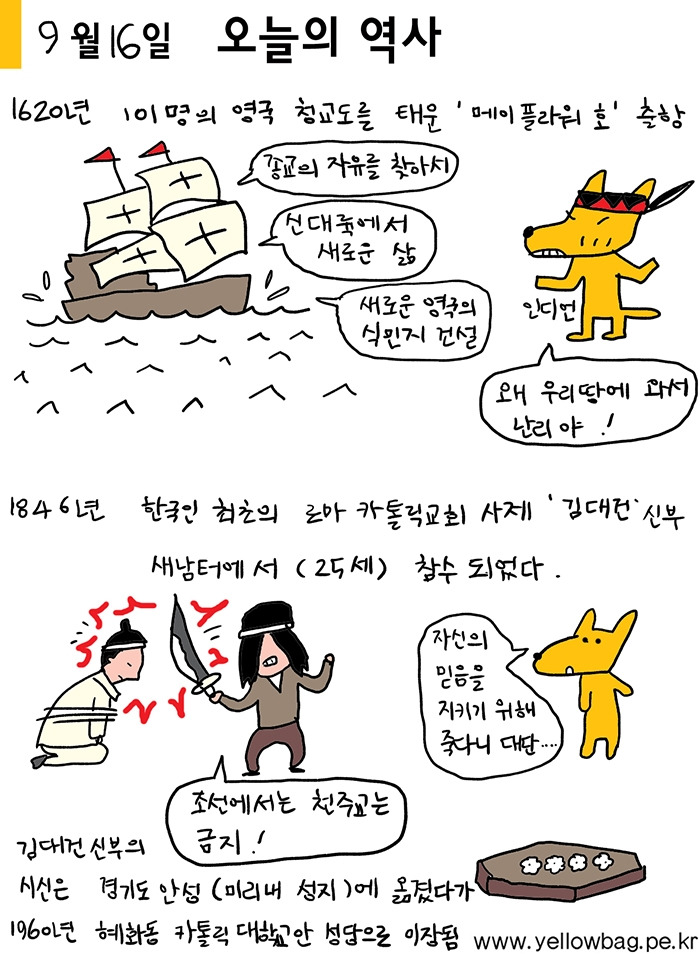 9월16일 오늘의 역사
1620년 101명의 영국 청교도를 태운 '메이플라워 호' 출항
종교의 자유를 찾아서
신대륙에서
새로운 삶
새로운 영국의
식민지 건설
인디언
왜 우리땅에 와서
난리야!
1846년 한국인 최초의 로마 카톨릭교회 사제 '김대건' 신부
새남터에서 (25세) 참수 되었다.
자신의
믿음을
지키기 위해
죽다니 대단....
조선에서는 천주교는
금지!
김대건신부의
시신은 경기도 안성(미리내 성지)에 옮겼다가
1960년 혜화동 카톨릭 대학교안 성당으로 이장됨
www.yellowbag.pe.kr